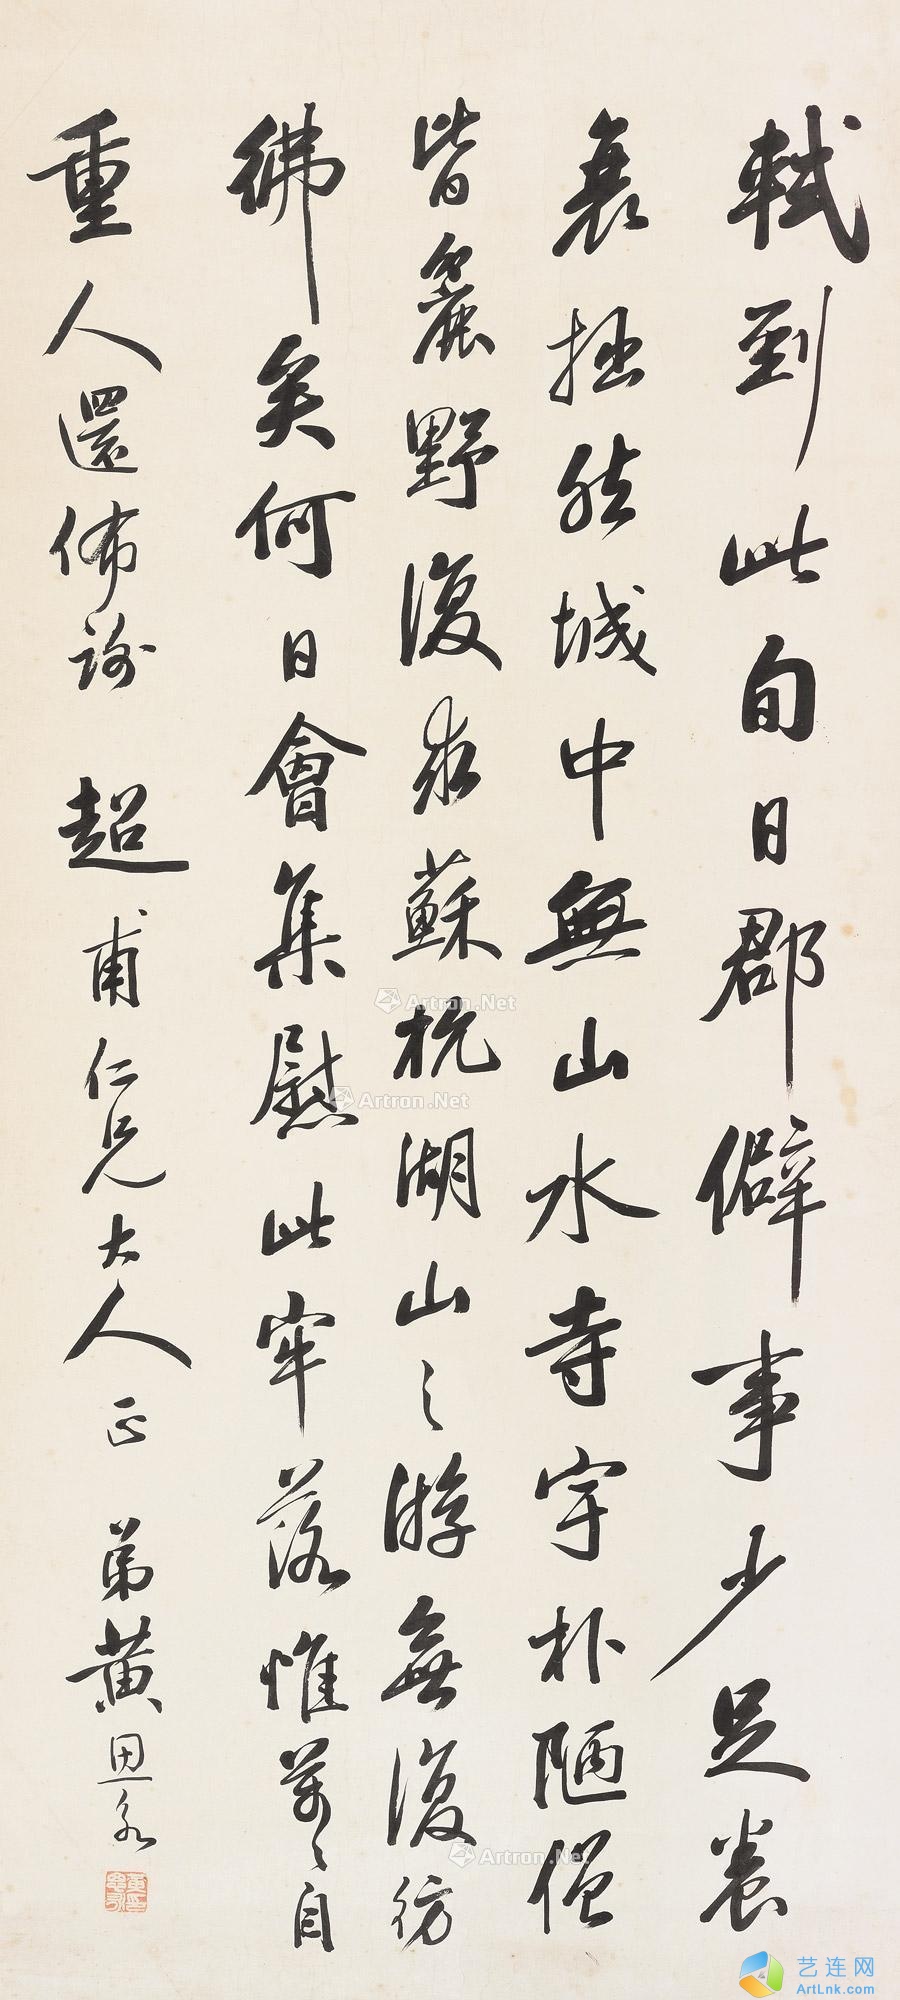 軾到此旬日郡僻事少足養
衰拙然城中無山水寺宇朴陋僧
皆麤野復求蘇杭湖山之游無復彷
彿矣何日會集慰此牢落惟萬萬自
重人還佈謝 超甫仁兄大人正 弟黃思永
Artron.Net
Artron.Net
Artron.Net
艺连网
ArtLnk.com